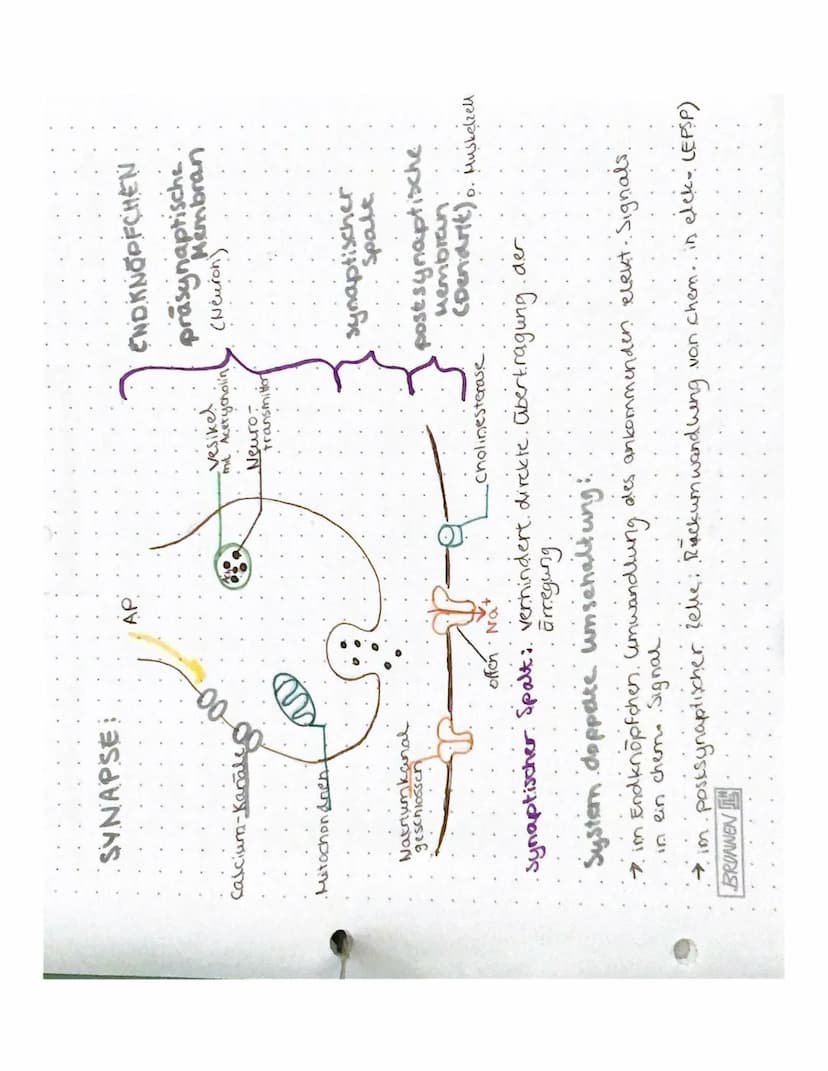 SYNAPSE:
AP
ENDKNÖPFCHEN
präsynaptische
Membran
(Neuron)
Vesikel
mit Acetylcholin
Neuro-
transmitter
Calcium-Kanäle
Mitochondrien
synaptischer
Spalt
postsynaptische
Membran
(Dendrit) o. Muskelzelle
Natriumkanal
geschlossen
offen
Na+
Cholinesterase
Synaptischer Spalt: verhindert direkte Übertragung der
Erregung
System doppelte Umschaltung:
→ im Endknöpfchen Umwandlung des ankommenden elekt. Signals
in ein chem. Signal
→ im postsynaptischer Zelle: Rückumwandlung von chem. in elek. (EPSP)
BRUNNEN